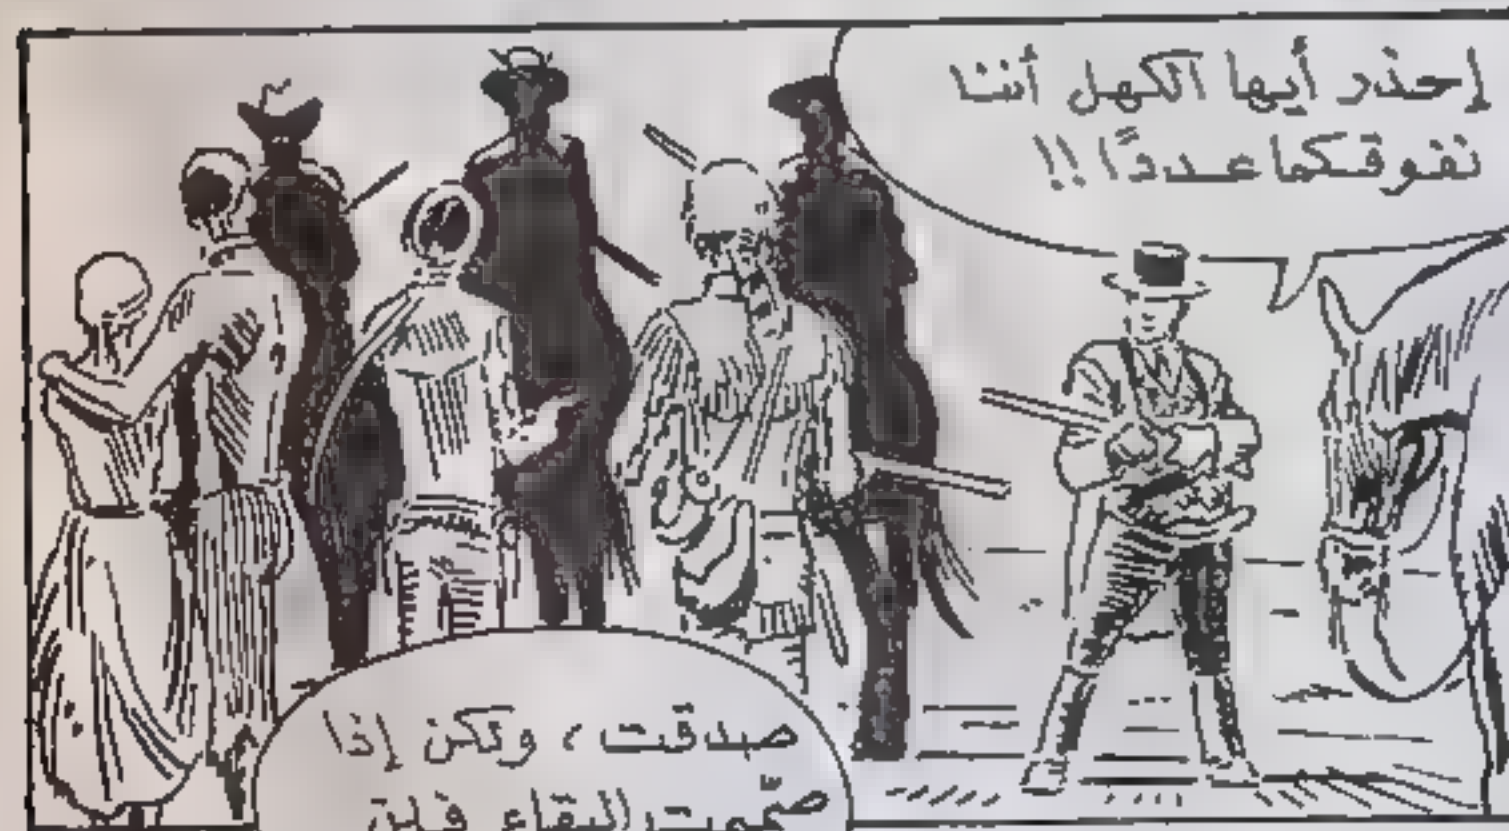 إحذر أيها الكهل أننا
نفوقكما عددًا !!
صدقت ، ولكن إذا
صمّمت البقاء فلن